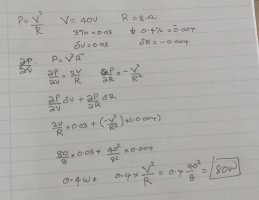 P = V²/R V = 40V R = 8Ω
3% = 0.03 & 0.4% = 0.004
δV = 0.03 δR = -0.004
∂P/∂V P = V²R⁻¹
∂P/∂V = 2V/R ∂P/∂R = -V²/R²
∂P/∂V δV + ∂P/∂R δR
2V/R × 0.03 + (-V²/R²) × (-0.004)
80/8 × 0.03 + 40²/8² × 0.004
0.4 w = 0.4 × V²/R = 0.4 40²/8 = 80W